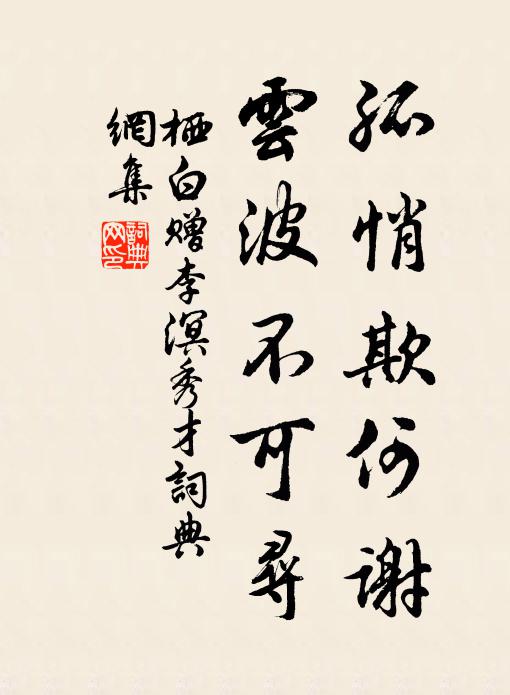 孤悄欺何谢
雲波不可尋
栖白赠李溟秀才詞典
網集
詞典网印